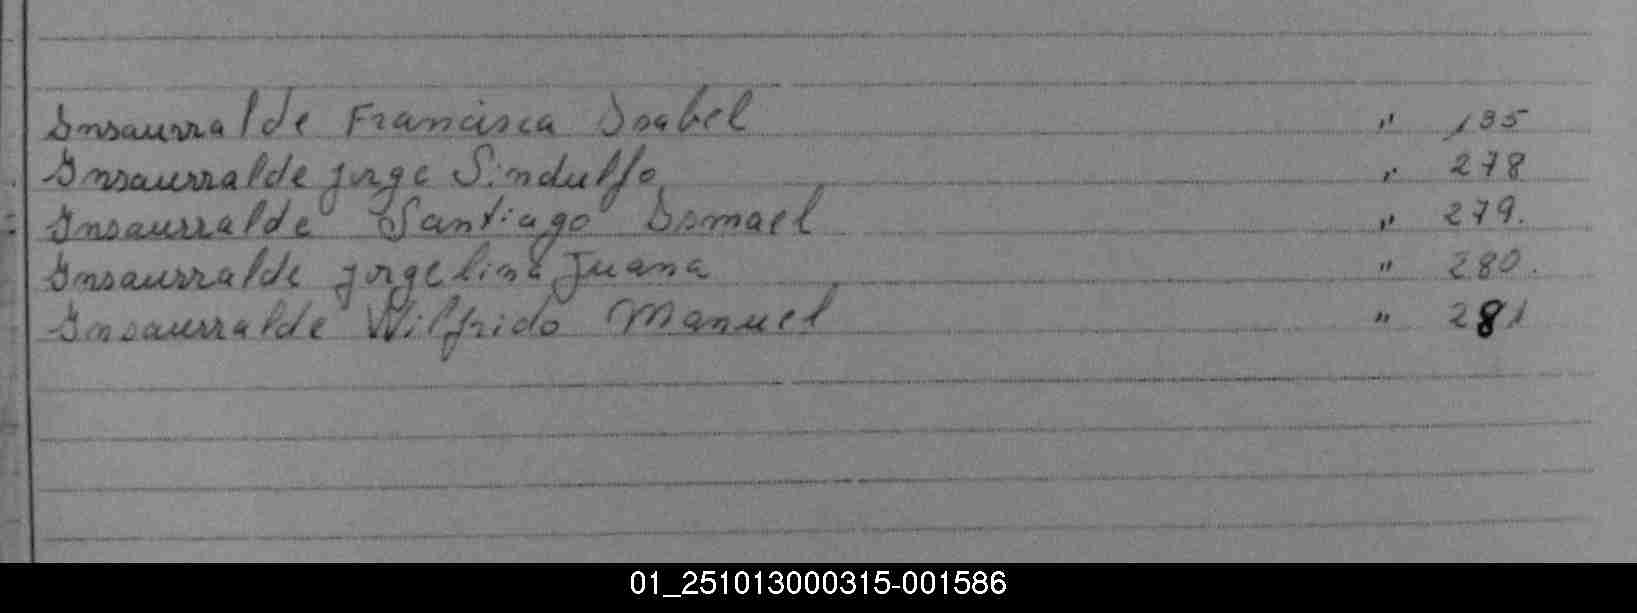 Insaurralde Francisca Isabel " 135
Insaurralde Jorge Sindulfo " 278
Insaurralde Santiago Ismael " 279.
Insaurralde Jorgelina Juana " 280.
Insaurralde Wilfrido Manuel " 281
01_251013000315-001586